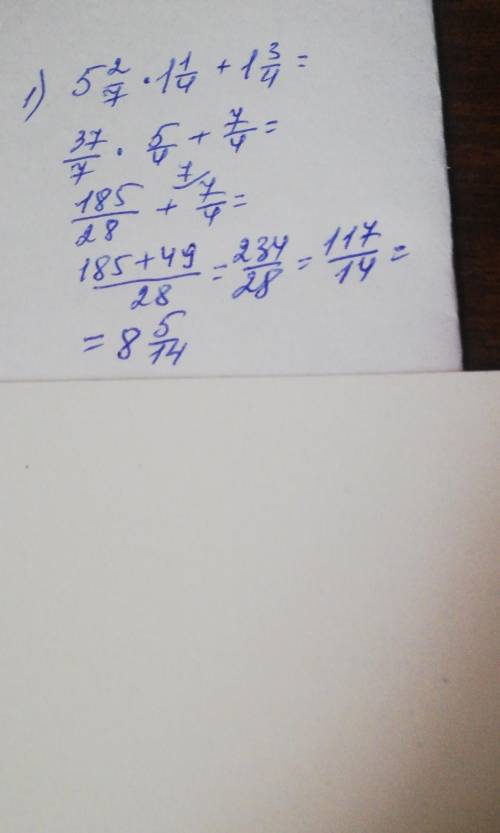 1) 5 2/7 · 1 1/4 + 1 3/4 =
37/7 · 5/4 + 7/4 =
185/28 + 7/4 7/ =
185+49/28 = 234/28 = 117/14 =
= 8 5/14